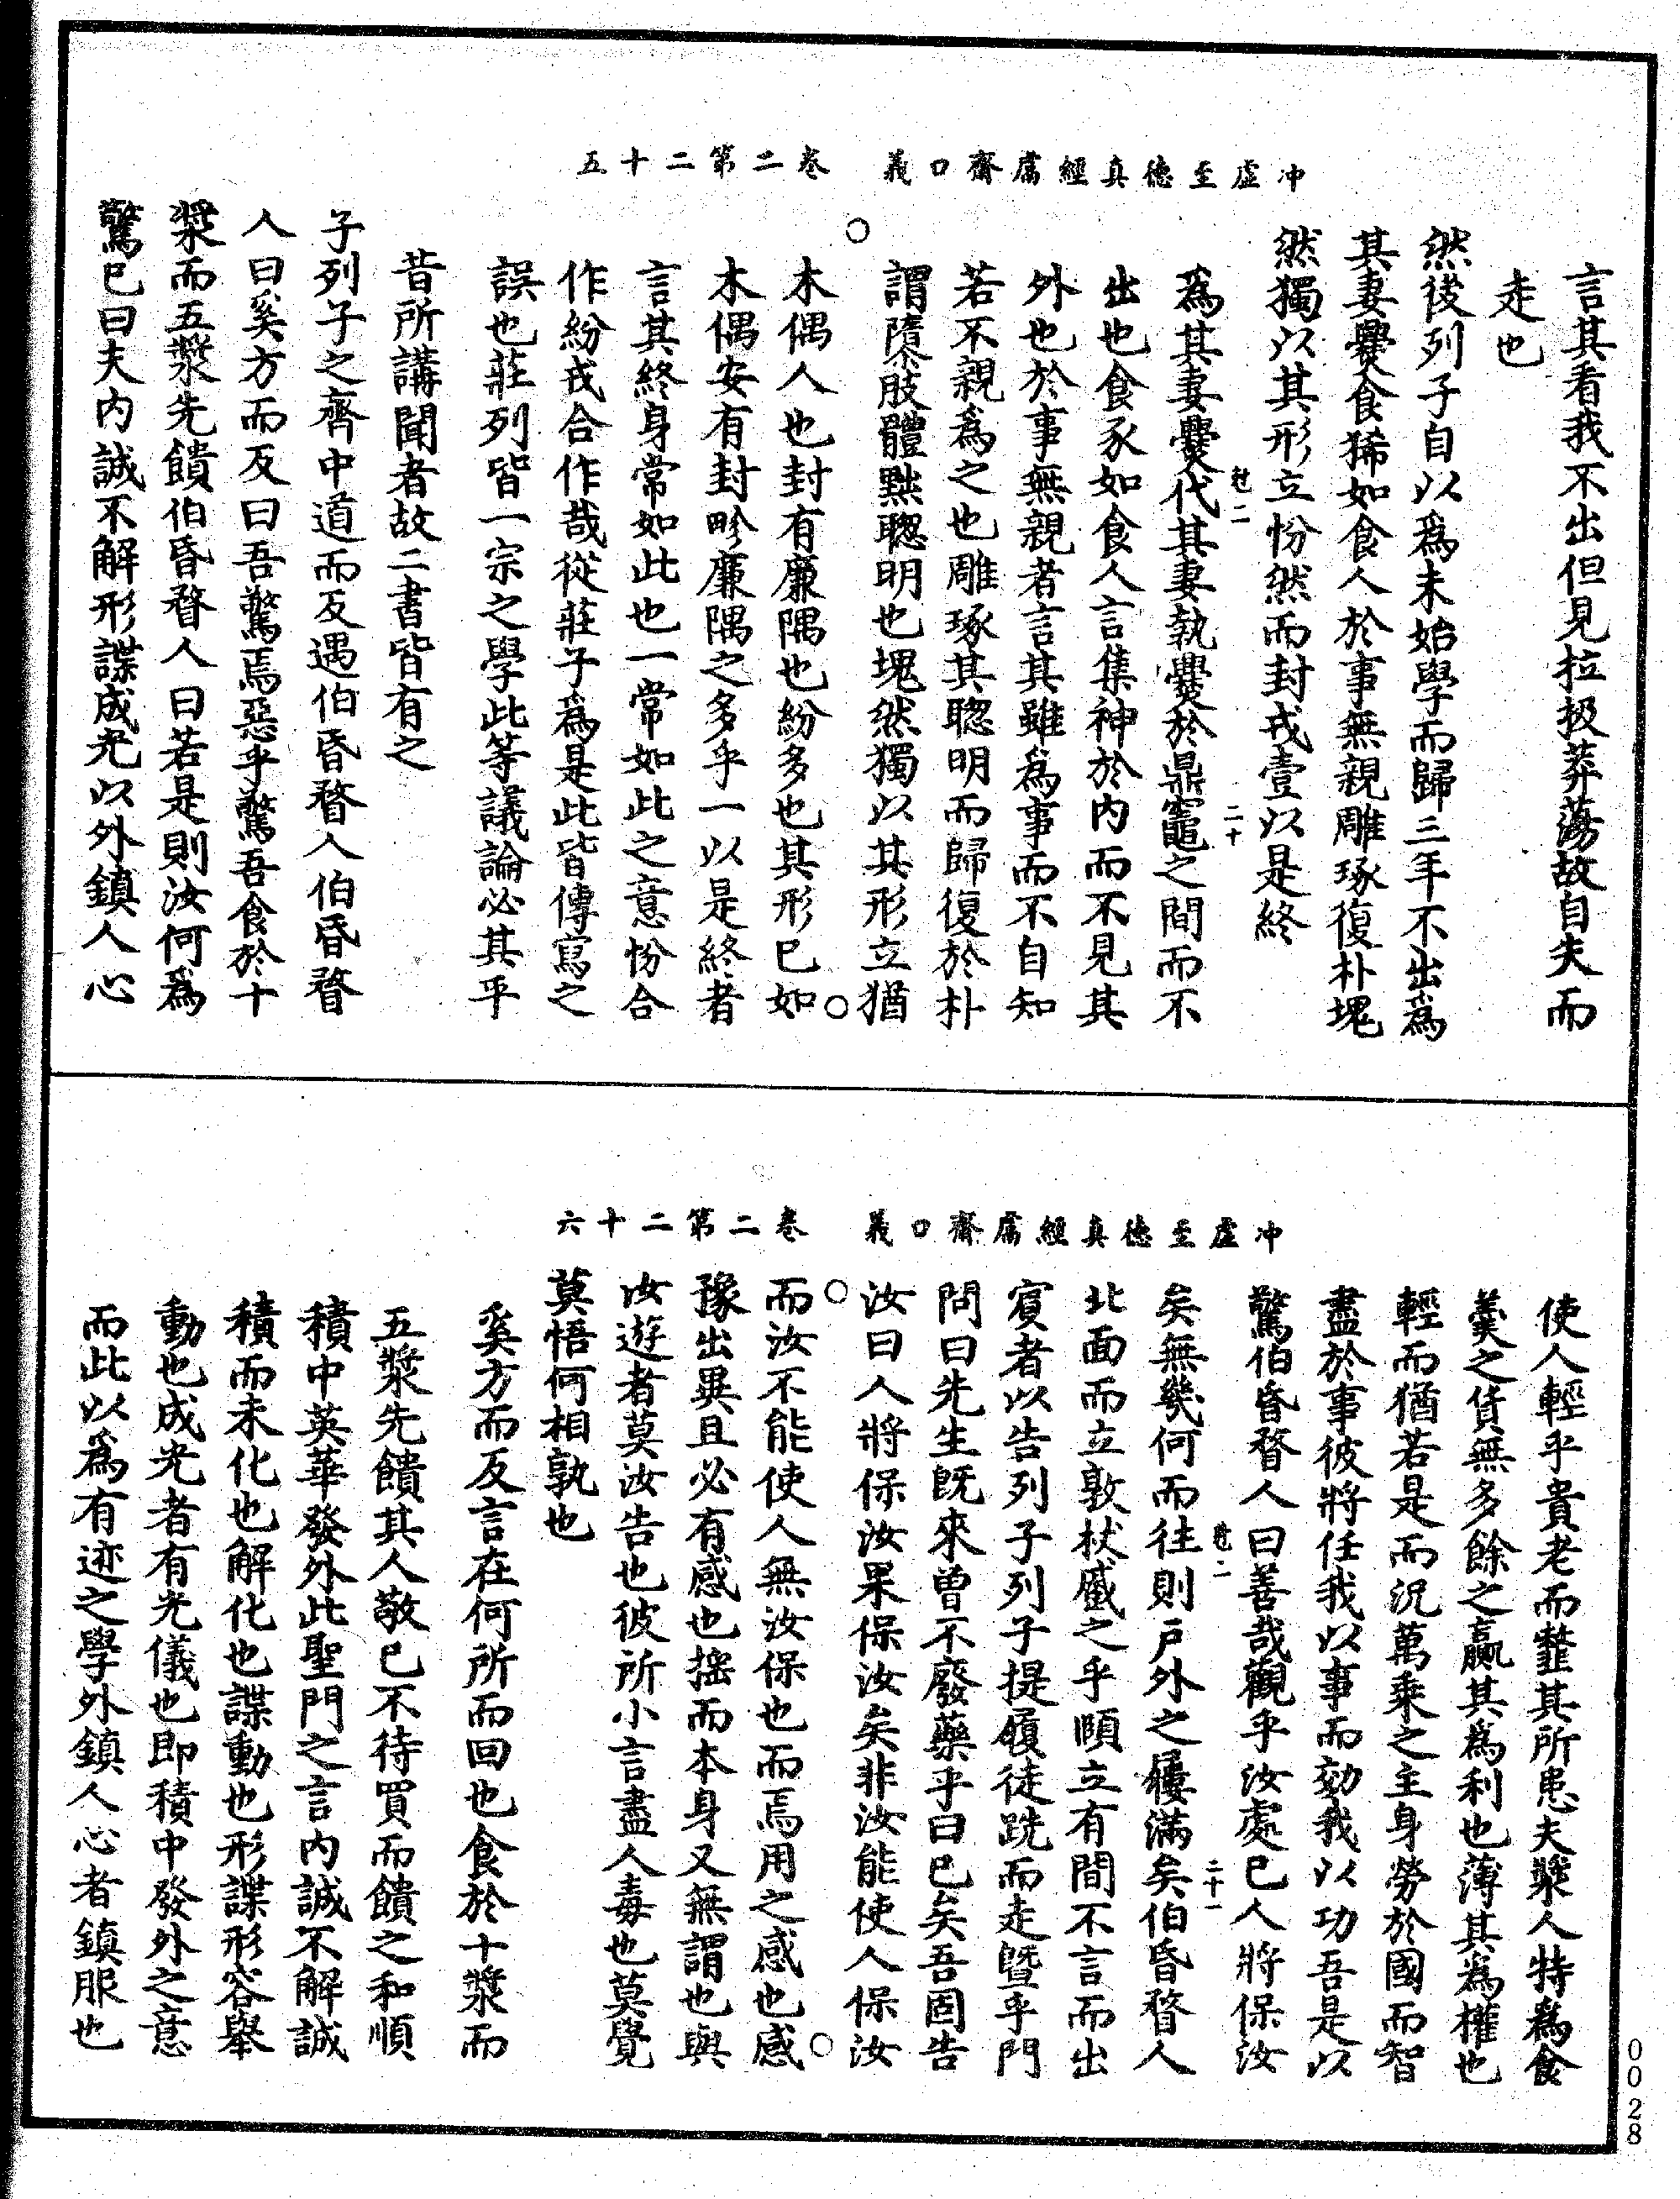 冲虛至德真經鬳齋口義　卷二第二十五
言其看我不出但見拉扱莽蕩故自失而
走也
然後列子自以爲未始學而歸三年不出爲
其妻爨食狶如食人於事無親雕琢復朴塊
然獨以其形立忿然而封戎壹以是終
爲其妻爨代其妻執爨於鼎竈之間而不
尅二　二十
出也食豕如食人言集神於内而不見其
外也於事無親者言其雖爲事而不自知
若不親爲之也雕琢其聰明而歸復於朴
謂隳肢體黜聰明也塊然獨以其形立猶
木偶人也封有廉隅也紛多也其形已如
木偶安有封畛廉隅之多乎一以是終者
言其終身常如此也一常如此之意忿合
作紛戎合作哉從莊子爲是此皆傳寫之
誤也莊列皆一宗之學此等議論必其平
昔所講聞者故二書皆有之
子列子之齊中道而反遇伯昏瞀人伯昏瞀
人曰奚方而反曰吾驚焉惡乎驚吾食於十
漿而五漿先饋伯昏瞀人曰若是則汝何爲
驚已曰夫内誠不解形諜成光以外鎮人心
冲虛至德真經鬳齋口義　卷二第二十六
使人輕乎貴老而䪠其所患夫漿人特爲食
羹之貨無多餘之贏其爲利也薄其爲權也
輕而猶若是而況萬乘之主身勞於國而智
盡於事彼將任我以事而効我以功吾是以
驚伯昏瞀人曰善哉觀乎汝處已人將保汝
矣無幾何而往則戶外之屨滿矣伯昏瞀人
尅二　二十一
北面而立敦杖蹙之乎頤立有間不言而出
賓者以告列子列子提履徒跣而走曁乎門
問曰先生既來曾不廢藥乎曰已矣吾固告
汝曰人將保汝果保汝矣非汝能使人保汝
而汝不能使人無汝保也而焉用之感也感
豫出異且必有感也搖而本身又無謂也與
汝遊者莫汝告也彼所小言盡人毒也莫覺
莫悟何相孰也
奚方而反言在何所而回也食於十漿而
五漿先饋其人敬已不待買而饋之和順
積中英華發外此聖門之言内誠不解誠
積而未化也解化也諜動也形諜形容舉
動也成光者有光儀也即積中發外之意
而此以爲有迹之學外鎮人心者鎮服也
0028